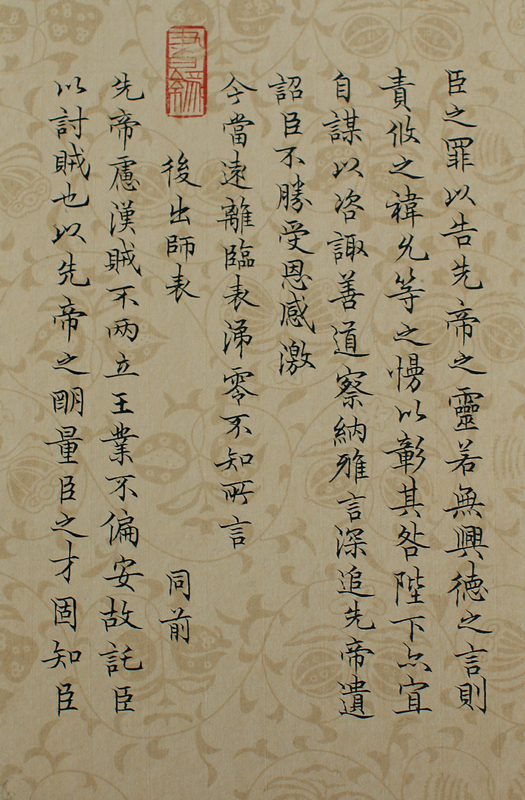 臣之罪以告先帝之靈若無興德之言則
責攸之禕允等之慢以彰其咎陛下亦宜
自謀以咨諏善道察納雅言深追先帝遺
詔臣不勝受恩感激
今當遠離臨表涕零不知所言
後出師表 同前
先帝慮漢賊不两立王業不偏安故託臣
以討賊也以先帝之明量臣之才固知臣